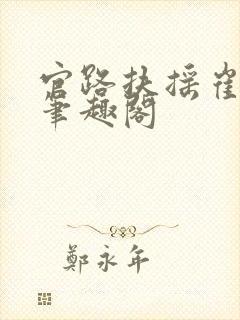 官路扶摇崔
笔趣阁
鄭永年